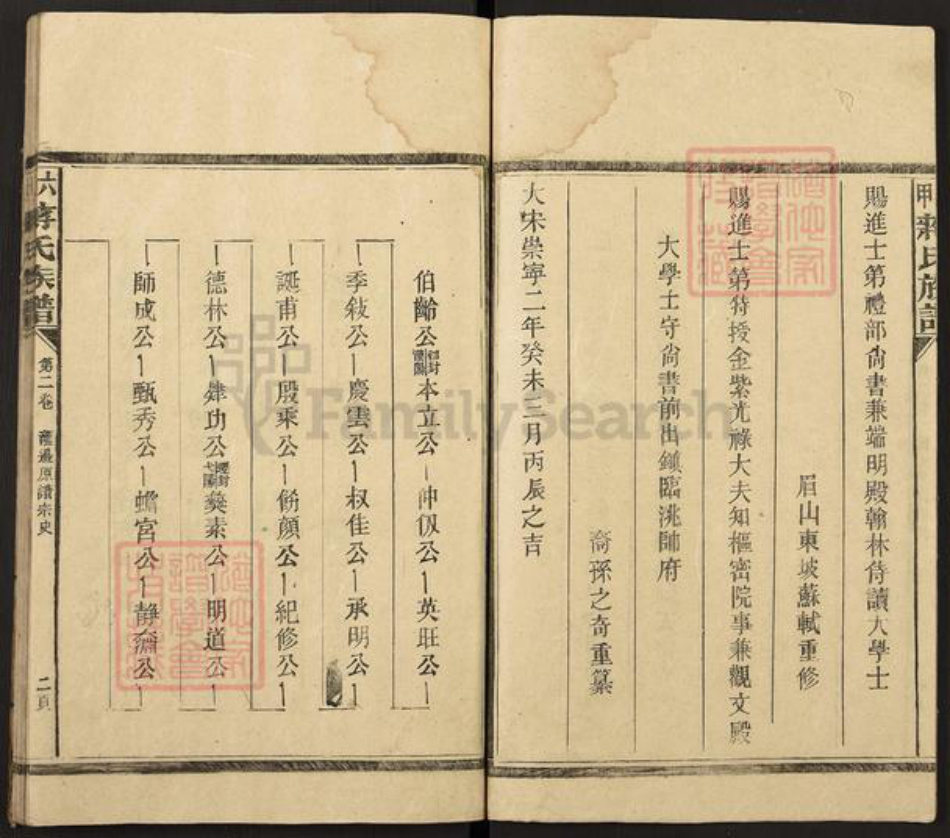 賜進士第禮部尙書兼端明殿翰林侍讀大學士
眉山東坡蘇軾重修
賜進士第特授金紫光祿大夫知樞密院事兼觀文殿
大學士守尙書前出鎭臨洮帥府
裔孫之奇重纂
大宋崇寧二年癸未三月丙辰之吉
伯齡公 本立公 仲伋公 英旺公
季敍公 慶雲公 叔佳公 承明公
誕甫公 殷乘公 脩顏公 紀修公
德林公 肆功公 奠素公 明道公
師成公 甄秀公 蟾宮公 靜齋公
氏族譜 第二卷 原譜宗史 二頁
FamilySearch